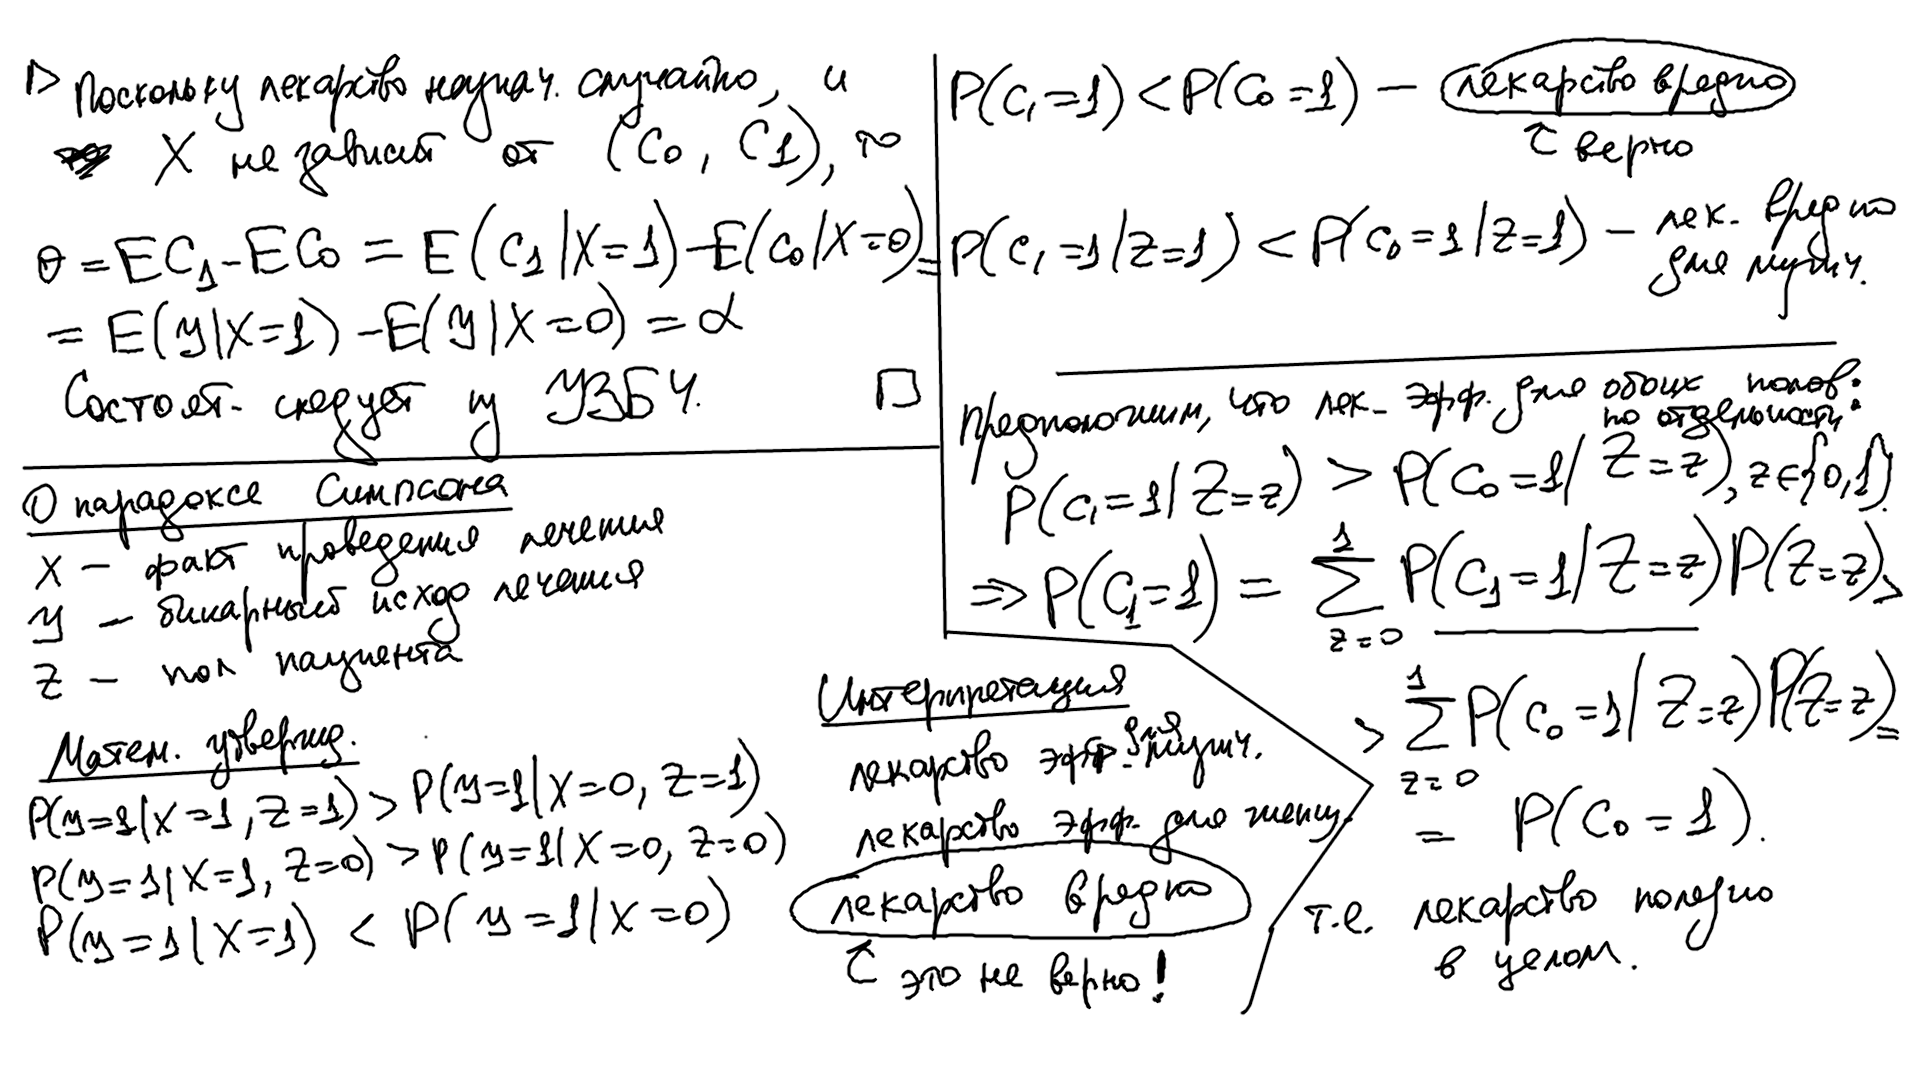 ▷ Поскольку лекарство назнач. случайно, и
X не зависит от (C₀, C₁), то
θ = EC₁ - EC₀ = E(C₁|X=1) - E(C₀|X=0) =
= E(y|X=1) - E(y|X=0) = α
Состоят. следует из УЗБЧ. □
О парадоксе Симпсона
X – факт проведения лечения
y – бинарный исход лечения
Z – пол пациента
Матем. утвержд.
P(y=1|X=1, Z=1) > P(y=1|X=0, Z=1)
P(y=1|X=1, Z=0) > P(y=1|X=0, Z=0)
P(y=1|X=1) < P(y=1|X=0)
Интерпретация
лекарство эфф. для мужч.
лекарство эфф. для женщ.
лекарство вредно
это не верно!
P(C₁=1) < P(C₀=1) – лекарство вредно
верно
P(C₁=1|Z=1) < P(C₀=1|Z=1) – лек. вредно
для мужч.
Предположим, что лек. эфф. для обоих полов
по отдельности:
P(C₁=1|Z=z) > P(C₀=1|Z=z), z∈{0,1}
⇒ P(C₁=1) = ∑_{z=0}^{1} P(C₁=1|Z=z)P(Z=z) >
> ∑_{z=0}^{1} P(C₀=1|Z=z)P(Z=z) =
= P(C₀=1).
т.е. лекарство полезно
в целом.